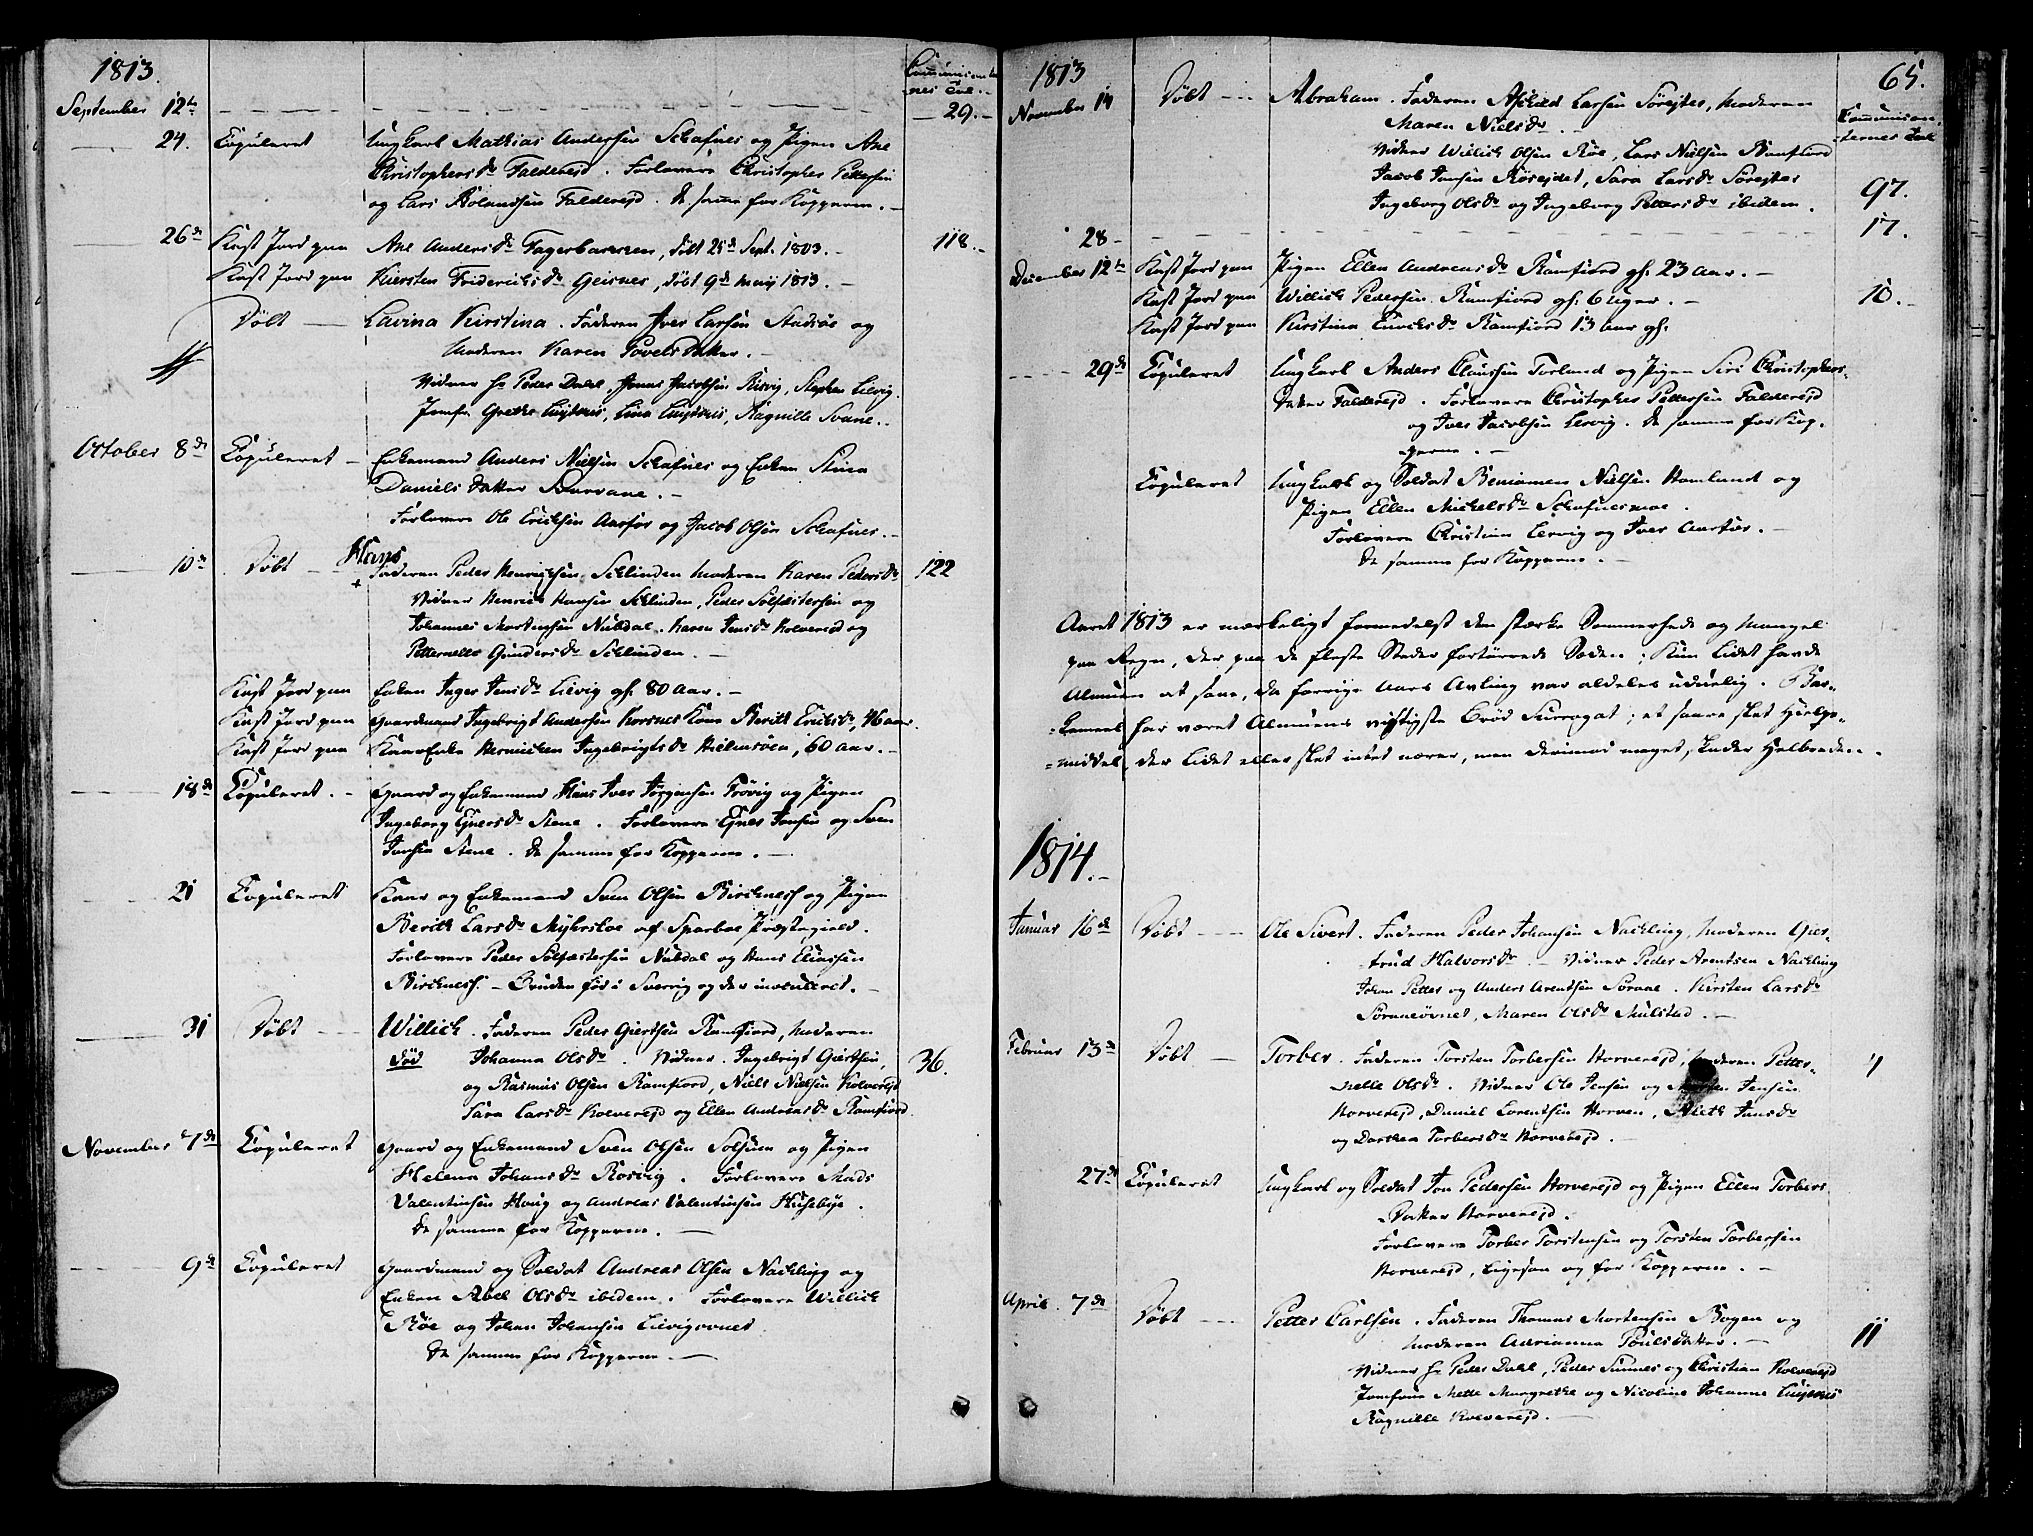 1813.
Communicanter
nes Tal.
September 12te 29.
24. Copuleret Ungkarl Mathias Andersen Schafnes og Pigen Ane
Christophersdr Falderejd. Forlovere Christopher Pettersen
og Lars Rolandsen Falderejd. De samme for Kopperne.
26de Kast Jord paa Ane Andersdr Fagerbakken, født 25de Sept. 1803. 118.
Kast Jord paa Kiersten Friderichsdr Geisnes, døbt 9de Maij 1813.
Døbt Lavina Kirstina. Faderen Iver Larsen og
Moderen Karen Povels Datter.
Vidner Hr Peder Dahl, Jonas Jacobsen Risvig, Stephen Lervig.
Jomfr. Grethe, Lina, Ragnille Svane.
October 8de Copuleret Enkemand Anders Nielsen Schafnes og Enken Stina
Daniels Datter.
Forlovere Ole Erichsen Aarfor og Jacob Olsen Schafnes.
10de Døbt Hans
Faderen Peder Henrichsen Schlinden Moderen Karen Pedersdr 122
Vidner Henrich Hansen Schlinden, Peder Solfæstersen og
Johannes Mortensen Nubdal. Karen Jensdr Kolverejd og
Petternelle Gundersdr Schlinden.
Kast Jord paa Enken Inger Jensdr Lervig gl. 80 Aar.
Kast Jord paa Gaardmand Ingebrigt Andersen Horsnes Kone Berith Erichsdr, 46 aar.
Kast Jord paa Kaar Enke Ingebrigtsdr, 60 aar.
18de Copuleret Gaard og Enkemand Hans Iver Jørgensen Frøvig og Pigen
Ingeborg Ejnersdr Stene. Forlovere Ejner Jonsen og Sven
Jonsen Stene. De samme for Kopperne.
21 Copuleret Kaar og Enkemand Sven Olsen Birchnesh og Pigen
Berith Larsdr af Sparboe Præstegield.
Forlovere Peder Solfæstersen Nubdal og Hans Eliassen
Birchnesh. Bruden før i Sverrig og der inoculeret.
31 Døbt Willich. Faderen Peder Giertsen Ramfiord, Moderen
død Johanna Olsdr. Vidner. Ingebrigt Giertsen, 36.
og Rasmus Olsen Ramfiord, Niels Nielsen Kolverejd
Sara Larsdr Kolverejd og Ellen Andreasdr Ramfiord.
November 7de Copuleret Gaard og Enkemand Sven Olsen Solsem og Pigen
Helena Johansdr Rosvig. Forlovere Mads
Valentinsen Hovig og Andreas Valentinsen Husebye.
De samme for Kopperne.
9de Copuleret Gaardmand og Soldat Andreas Olsen Nackling og
Enken Abel Olsdr ibidem. Forlovere Willich
Røe og Johan Johansen Lervigovnet
De samme for Kopperne.
1813 65.
Communican-
ternes Tal
November 14 Døbt Abraham. Faderen Larsen Sørejtes, Moderen
Maren Nielsdr.
Vidner Willich Olsen Røe, Lars Nielsen Ramfiord
Jacob Jonsen, Sara Larsdr Sørejtes 97.
Ingeborg Olsdr og Ingeborg Pettersdr ibidem.
28 17.
December 12te Kast Jord paa Pigen Ellen Andreasdr Ramfiord gl. 23 Aar.
Kast Jord paa Willich Pedersen Ramfiord gl. 6 Uger. 10.
Kast Jord paa Kirstina Ramfiord 13 Aar gl.
29de Copuleret Ungkarl Anders Claussen Torland og Pigen Siri Christophers-
Datter Falderejd. Forlovere Christopher Pettersen Falderejd
og Iver Jacobsen Lervig. De samme for Kop-
perne.
Copuleret Ungkarl og Soldat Beniamen Nielsen Homland og
Pigen Ellen Michelsdr Schafnesmoe.
Forlovere Christian Lervig og Iver Aarfor.
De samme for Kopperne.
Aaret 1813 er mærkeligt formedelst den stærke Sommerhede og Mangel
paa Regn, der paa de fleste Steder fortørrede Sæden; Kun lidet havde
Almuen at saae, da forrige Aars Avling var aldeles uduelig. Bar-
kemeel har været Almuens vigtigste Brød Surrogat; et saare slet Hielpe-
middel, der lidet eller slet intet nærer, men derimod meget skader Helbreden.
1814.
Januar 16de Døbt Ole Sivert. Faderen Peder Johansen Nackling, Moderen Gier-
trud Halvorsdr. Vidner Peder Arentsen Nackling
Johan Petter og Anders Arentsen Sørane. Kirsten Larsdr
Maren Olsdr Mulstad.
Februar 13de Døbt Torber. Faderen Torsten Torbersen Horverejd, Moderen Petter- 4
nelle Olsdr. Vidner Ole Jensen og Jensen
Horverejd, Daniel Lorentsen Horven, Aleth Jensdr
og Dorthea Torbersdr Horverejd.
27de Copuleret Ungkarl og Soldat Jon Pedersen Horverejd og Pigen Ellen Torbers
Datter Horverejd.
Forlovere Torber Torstensen og Torsten Torbersen
Horverejd, Ligesaa og for Kopperne.
April 7de Døbt Petter Carlsen. Faderen Thomas Mortensen Bogen og 11
Moderen Adrianna Poulsdatter.
Vidner Hr Peder Dahl, Peder Sumnes og Christian Kolverejd
Jomfrue Mette Margrethe og Nicoline Johanne
Ragnille Kolverejd.